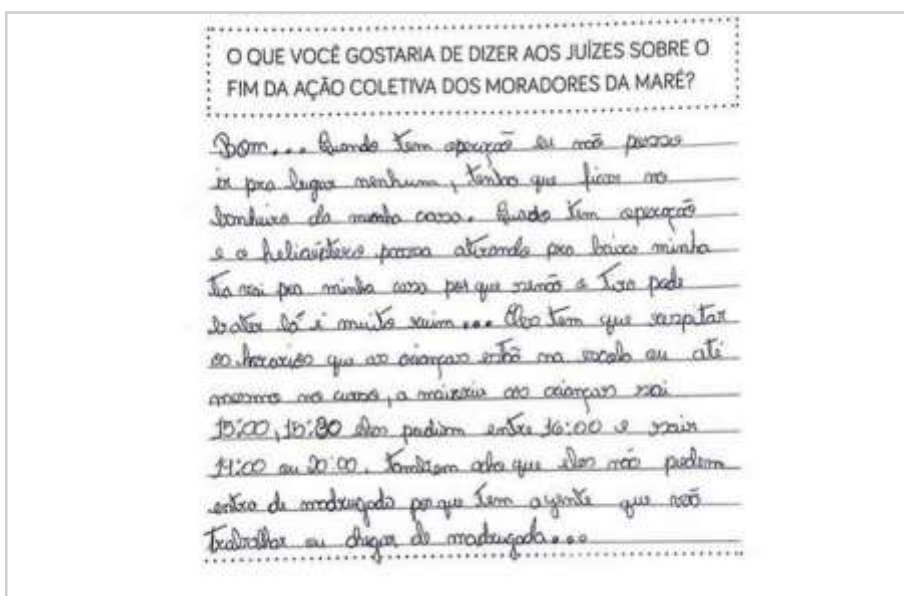 O QUE VOCÊ GOSTARIA DE DIZER AOS JUÍZES SOBRE O
FIM DA AÇÃO COLETIVA DOS MORADORES DA MARÉ?
Bom... Quando tem operação eu não posso
ir pra lugar nenhum, tenho que ficar no
banheiro da minha casa. Quado tem operação
e o helicóptero passa atirando pra baixo minha
tia vai pra minha casa por que senão o tiro pode
bater lá é muito ruim... Eles tem que respitar
os horarios que as crianças estão na escola ou até
mesmo no curso, a maioria as crianças sai
15:00, 15:30 eles podiam entra 16:00 e sair
19:00 ou 20:00. Tambem acho que eles não podem
entra de madrugada porque tem agente que vão
trabalhar ou chegar de madrugada...